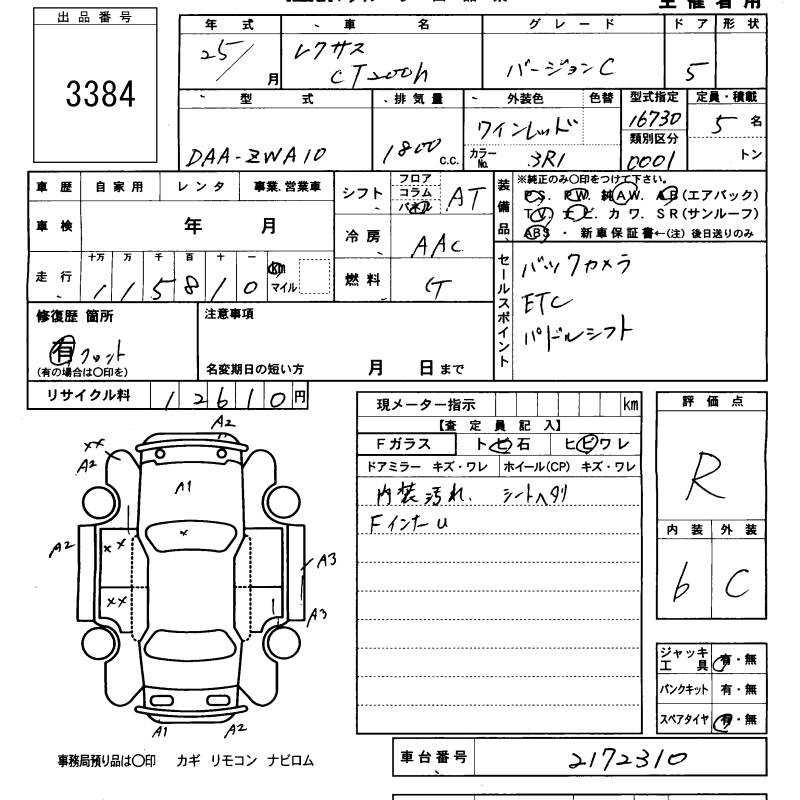 主催者用
出品番号
3384
年式 車名 グレード ドア 形状
25/ 月 レクサス CT200h バージョンC 5
型式 排気量 外装色 色替 型式指定 定員・積載
DAA-ZWA10 1800 c.c. ワインレッド 16730 5 名
カラーNo. 3R1 類別区分 0001 トン
車歴 自家用 レンタ 事業.営業車
車検 年 月
走行 十万 万 千 百 十 一
1 1 5 8 1 0 km マイル
シフト フロア コラム パネル AT
冷房 AAC
燃料 G
装備品 ※純正のみ○印をつけて下さい。
P.S. P.W. 純A.W. A.B(エアバック)
T.V. ナビ. カワ. SR(サンルーフ)
ABS ・ 新車保証書←(注) 後日送りのみ
セールスポイント
バックカメラ
ETC
パドルシフト
修復歴 箇所
有 フロント
(有の場合は○印を)
注意事項
名変期日の短い方 月 日まで
リサイクル料 12610円
現メーター指示 km
【査定員記入】
Fガラス トビ石 ヒビワレ
ドアミラー キズ・ワレ ホイール(CP) キズ・ワレ
内装汚れ. シートヘタリ
FインナーU
評価点
R
内装 外装
b C
ジャッキ 工具 有・無
パンクキット 有・無
スペアタイヤ 有・無
A2
××
A2
A1
×
A2
××
A3
××
A3
A1
A2
事務局預り品は○印 カギ リモコン ナビロム
車台番号 2172310